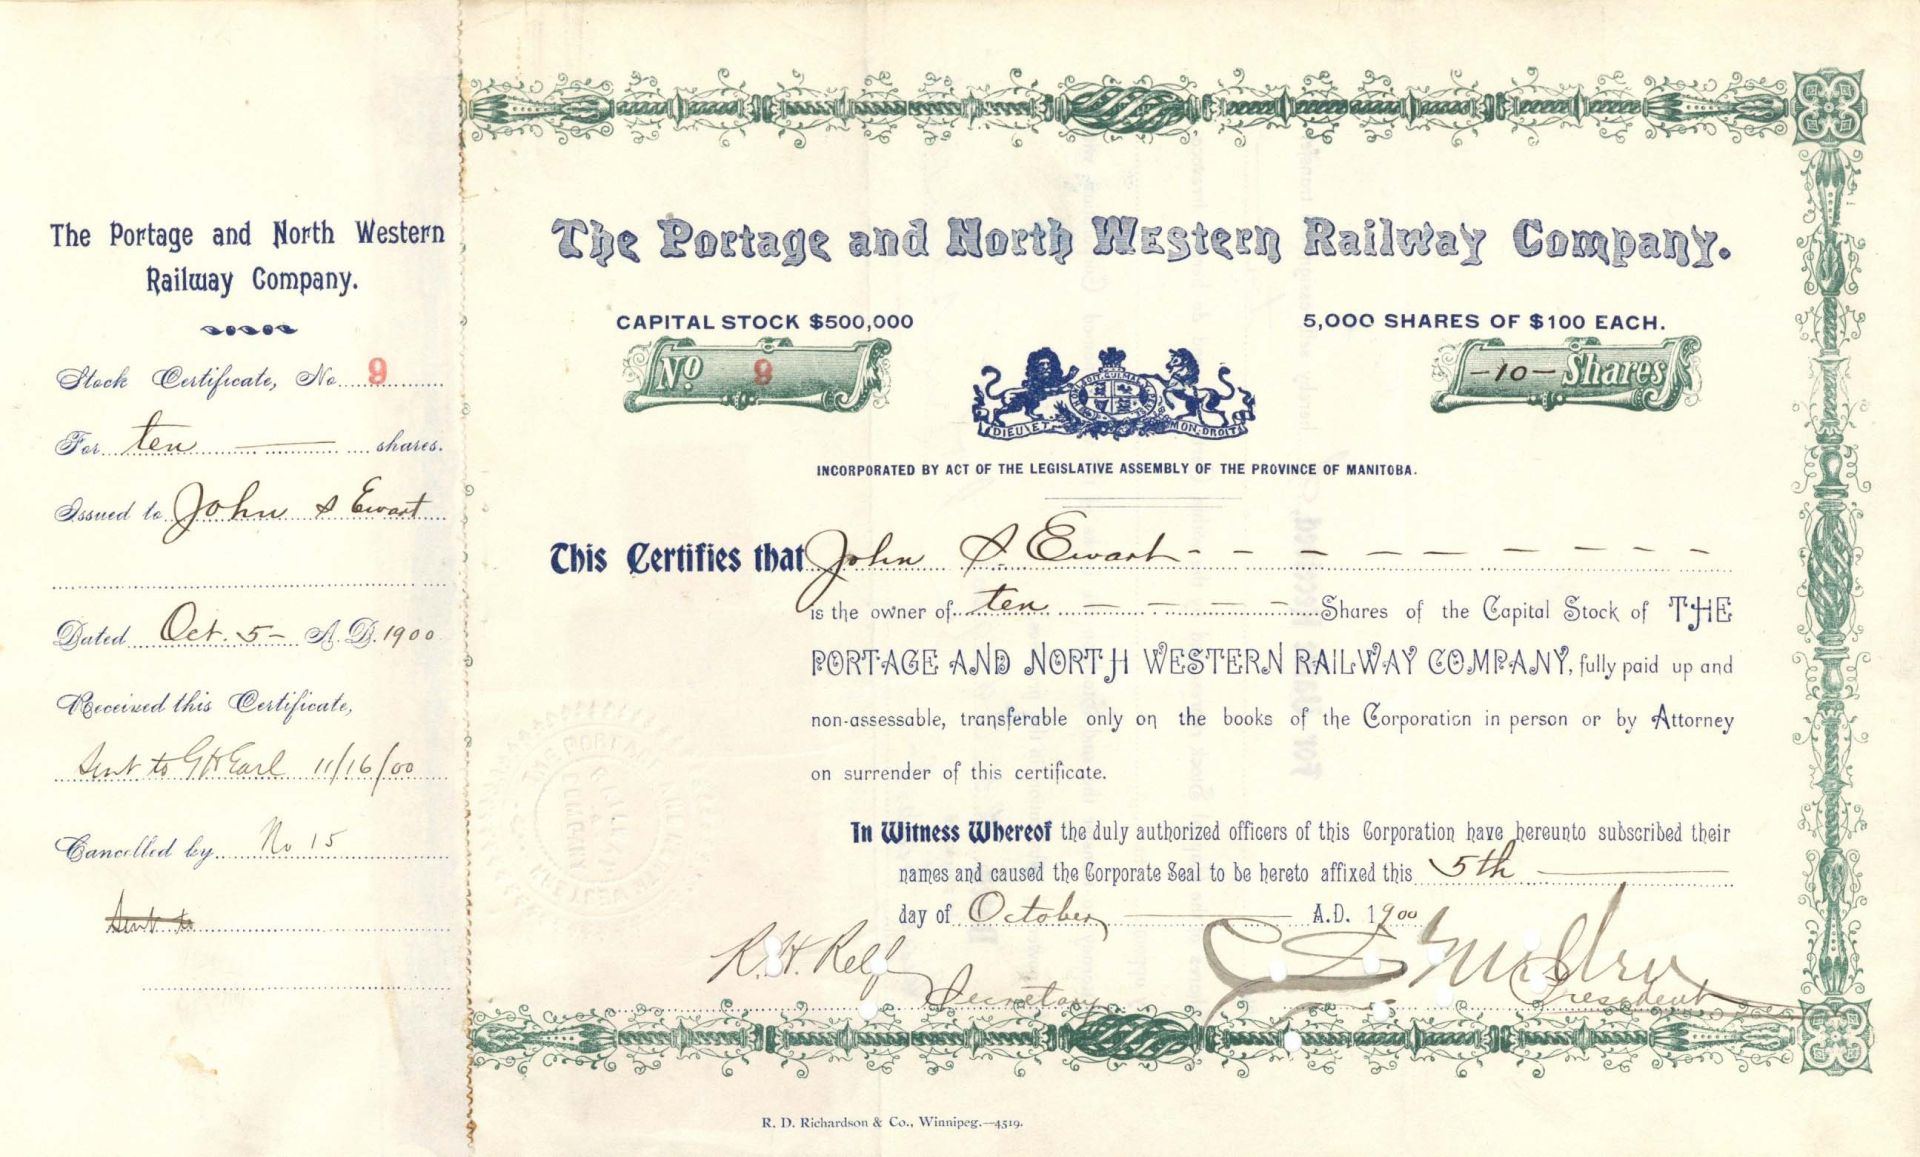 The Portage and North Western
Railway Company.
Stock Certificate, No. 9
For ten shares.
Issued to John S Ewart
Dated Oct. 5 - A.D. 1900
Received this Certificate,
Sent to G H Earl 11/16/00
Cancelled by No 15
Sent to
The Portage and North Western Railway Company.
CAPITAL STOCK $500,000
5,000 SHARES OF $100 EACH.
No 9
-10- Shares
DIEU ET MON DROIT
INCORPORATED BY ACT OF THE LEGISLATIVE ASSEMBLY OF THE PROVINCE OF MANITOBA.
This Certifies that John S. Ewart
is the owner of ten Shares of the Capital Stock of THE
PORTAGE AND NORTH WESTERN RAILWAY COMPANY, fully paid up and
non-assessable, transferable only on the books of the Corporation in person or by Attorney
on surrender of this certificate.
In Witness Whereof the duly authorized officers of this Corporation have hereunto subscribed their
names and caused the Corporate Seal to be hereto affixed this 5th
day of October A.D. 1900
R. H. Relf
Secretary
President
R. D. Richardson & Co., Winnipeg.—4519.